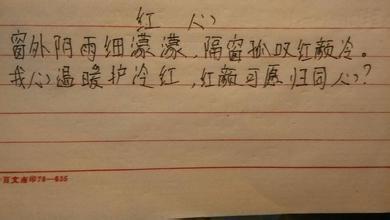 红心
窗外阴雨细濛濛，隔窗孤叹红颜冷。
我心温暖护冷红，红颜可愿归同心？
百文点印78—635